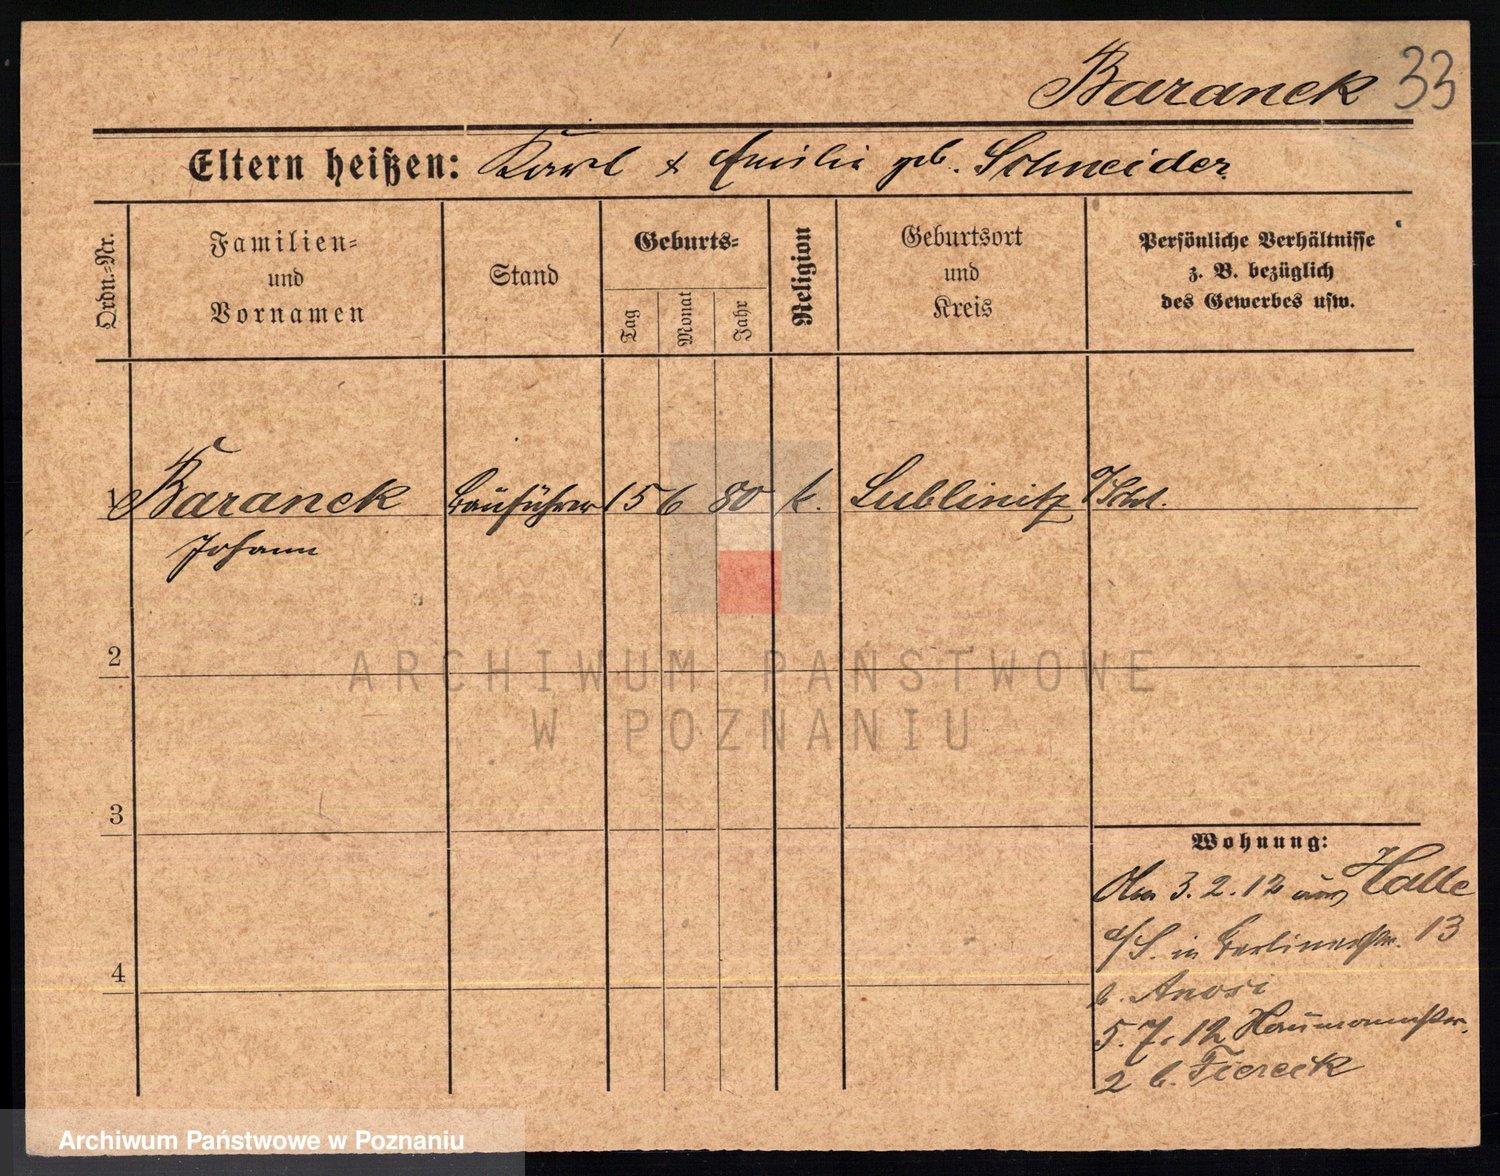 Baranek 33
Eltern heißen: Karl & Emilie geb. Schneider
Ordn.-Nr.
Familien-
und
Vornamen
Stand
Geburts-
Tag
Monat
Jahr
Religion
Geburtsort
und
Kreis
Persönliche Verhältnisse
z. B. bezüglich
des Gewerbes usw.
1 Baranek Bauführer 15 6 80 k. Lublinitz O/Schl.
Johann
2
3
4
Wohnung:
3.2.12 aus Halle
a/S. in Berlinerstr. 13
b.
5.7.12 Naumannstr.
2 b. Fiereck
ARCHIWUM PAŃSTWOWE
W POZNANIU
Archiwum Państwowe w Poznaniu